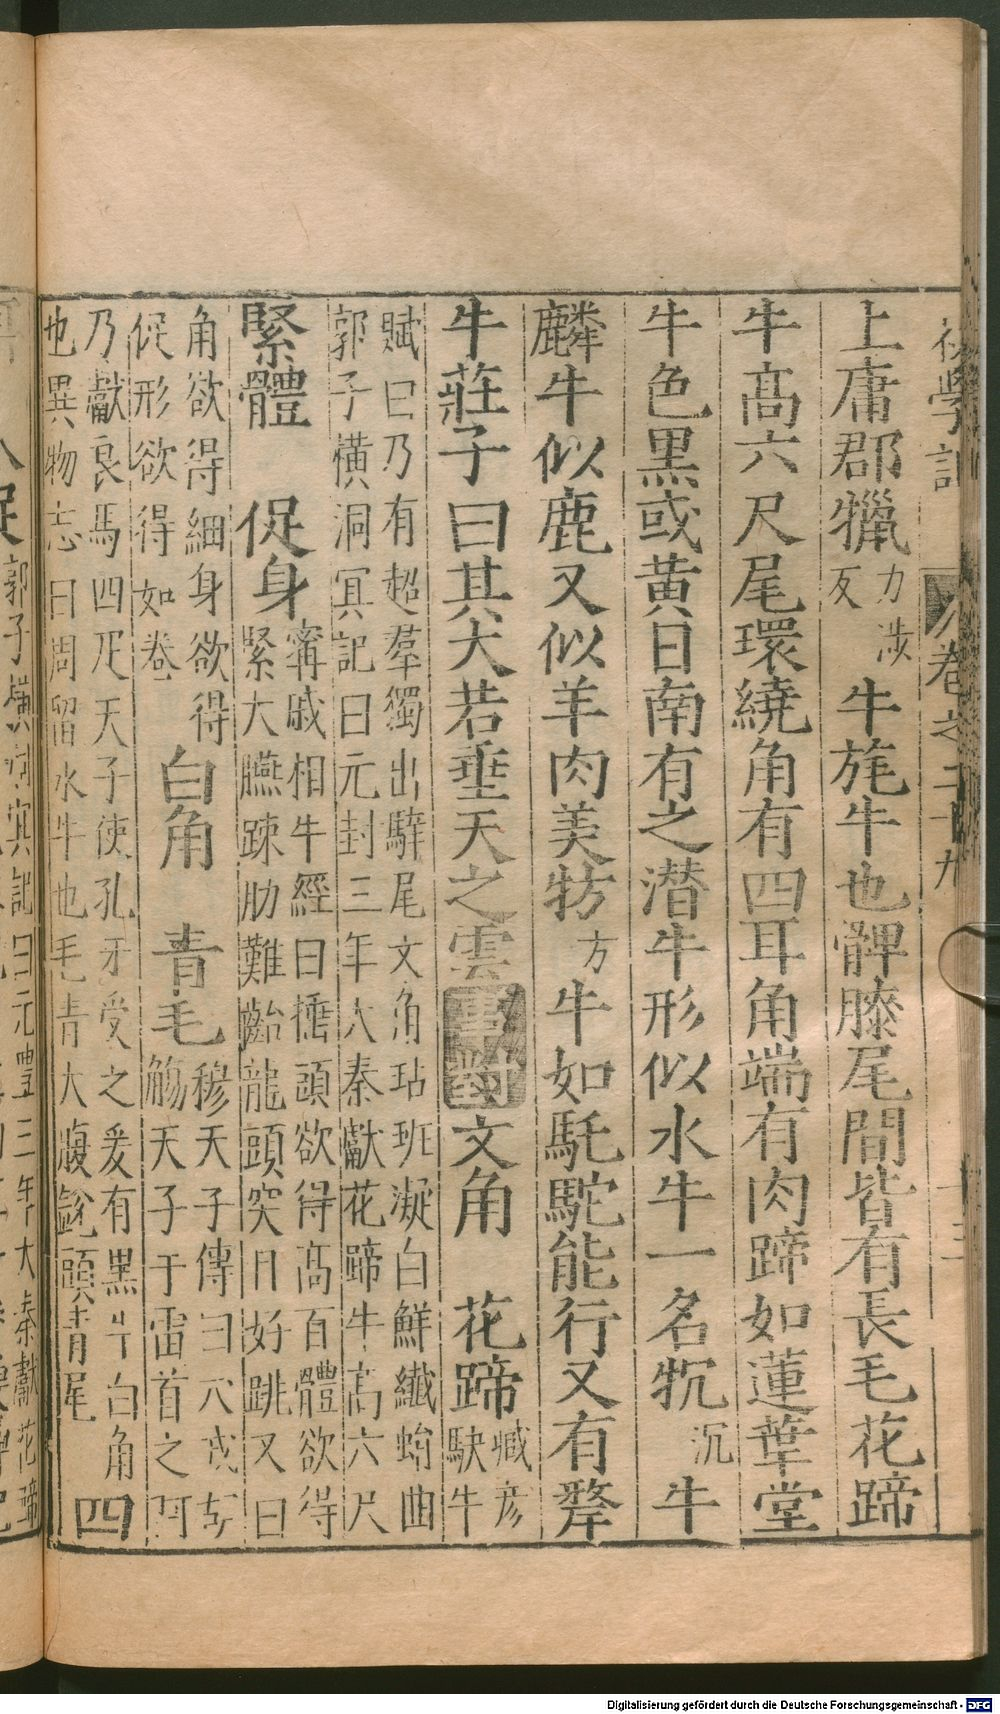 初學記 卷之二十九 十二
上庸郡犦力涉反 牛旄牛也髀膝尾間皆有長毛花蹄
牛髙六尺尾環繞角有四耳角端有肉蹄如蓮華堂
牛色黒或黄日南有之潜牛形似水牛一名牨沉牛
麟牛似鹿又似羊肉美牥方牛如馲駝能行又有犛
牛莊子曰其大若垂天之雲事對文角 花蹄臧彦駃牛
賦曰乃有超羣獨出騂尾文角玷班凝白鮮纎蛕曲
郭子横洞冥記曰元封三年大秦獻花蹄牛髙六尺
緊體 促身甯戚相牛經曰插頭欲得髙百體欲得
緊大臁踈肋難齝龍頭突目好跳又曰
角欲得細身欲得
促形欲得如卷 白角 青毛穆天子傳曰
觴天子于雷首之阿
乃獻良馬四疋天子使孔牙受之爰有黒牛白角
也異物志曰周留水牛也毛青大腹銳頭青尾 四